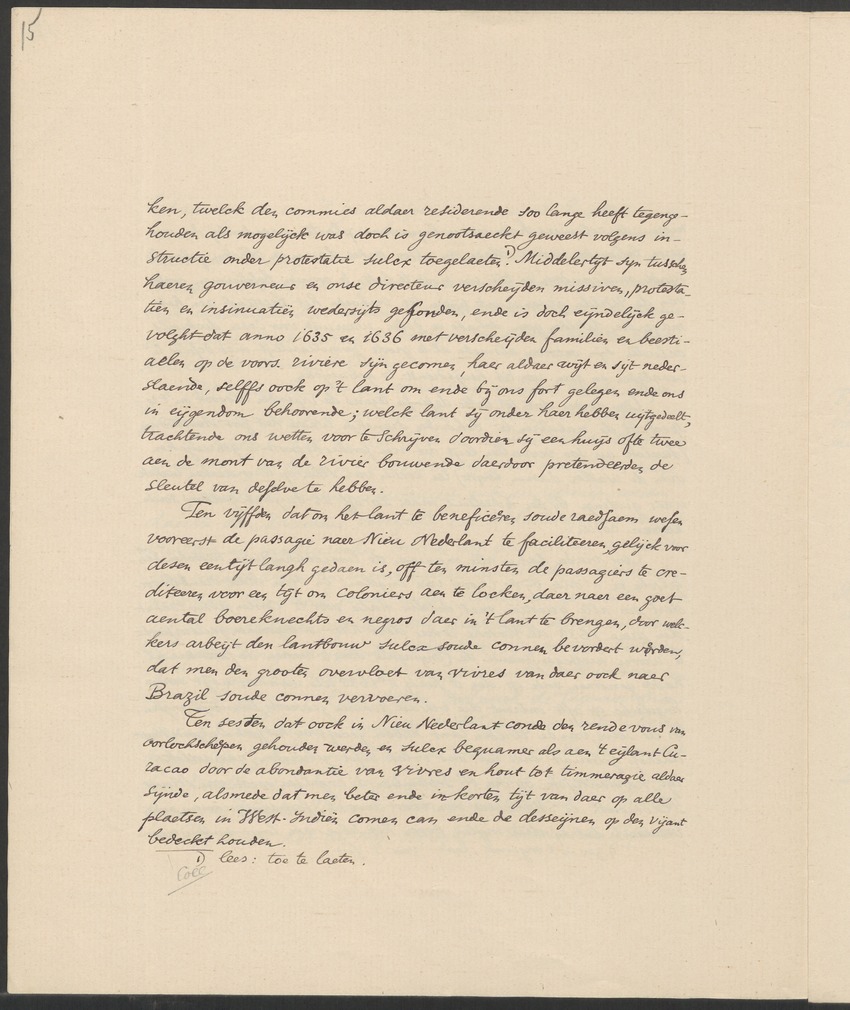 15
ken, twelck den commies aldaer residerende soo lange heeft tegenge-
houden als mogelijck was doch is genootsaeckt geweest volgens in-
structie onder protestatie sulcx toegelaeten 1). Middelertyt syn tusschen
haeren gouverneur en onse directeur verscheijden missiven, protesta-
tien en insinuatiën wedersijts gesonden, ende is doch eijndelijck ge-
volght dat anno 1635 en 1636 met verscheijden familiën en beesti-
aelen op de voors. rivière sijn gecomen, haer aldaer wijt en sijt neder-
slaende, selffs oock op 't lant om ende bij ons fort gelegen ende ons
in eijgendom behoorende; welck lant sij onder haer hebben uytgedeelt,
trachtende ons wetten voor te schrijven doordien sij een huijs ofte twee
aen de mont van de rivier bouwende daerdoor pretendeerden de
sleutel van deselve te hebben.
Ten vijffden dat om het lant te beneficeren soude raedsaem wesen
vooreerst de passagie naer Nieu Nederlant te faciliteeren, gelijck voor
desen een tijt langh gedaen is, off ten minsten de passagiers te cre-
diteeren voor een tijt om coloniers aen te locken, daer naer een goet
aental boereknechts en negros daer in 't lant te brengen, door wel-
kers arbeijt den lantbouw sulcx soude connen bevordert worden,
dat men den grooten overvloet van vivres van daer oock naer
Brazil soude connen vervoeren.
Ten sesten dat oock in Nieu Nederlant conde den rendevous van
oorlochschepen gehouden werden en sulcx bequamer als aen 't eijlant Cu-
racao door de abondantie van vivres en hout tot timmeragie aldaer
sijnde, alsmede dat men beter ende in korten tijt van daer op alle
plaetsen in West-Indiën comen can ende de desseijnen op den vijant
bedeckt houden.
1) lees: toe te laeten.
Coll